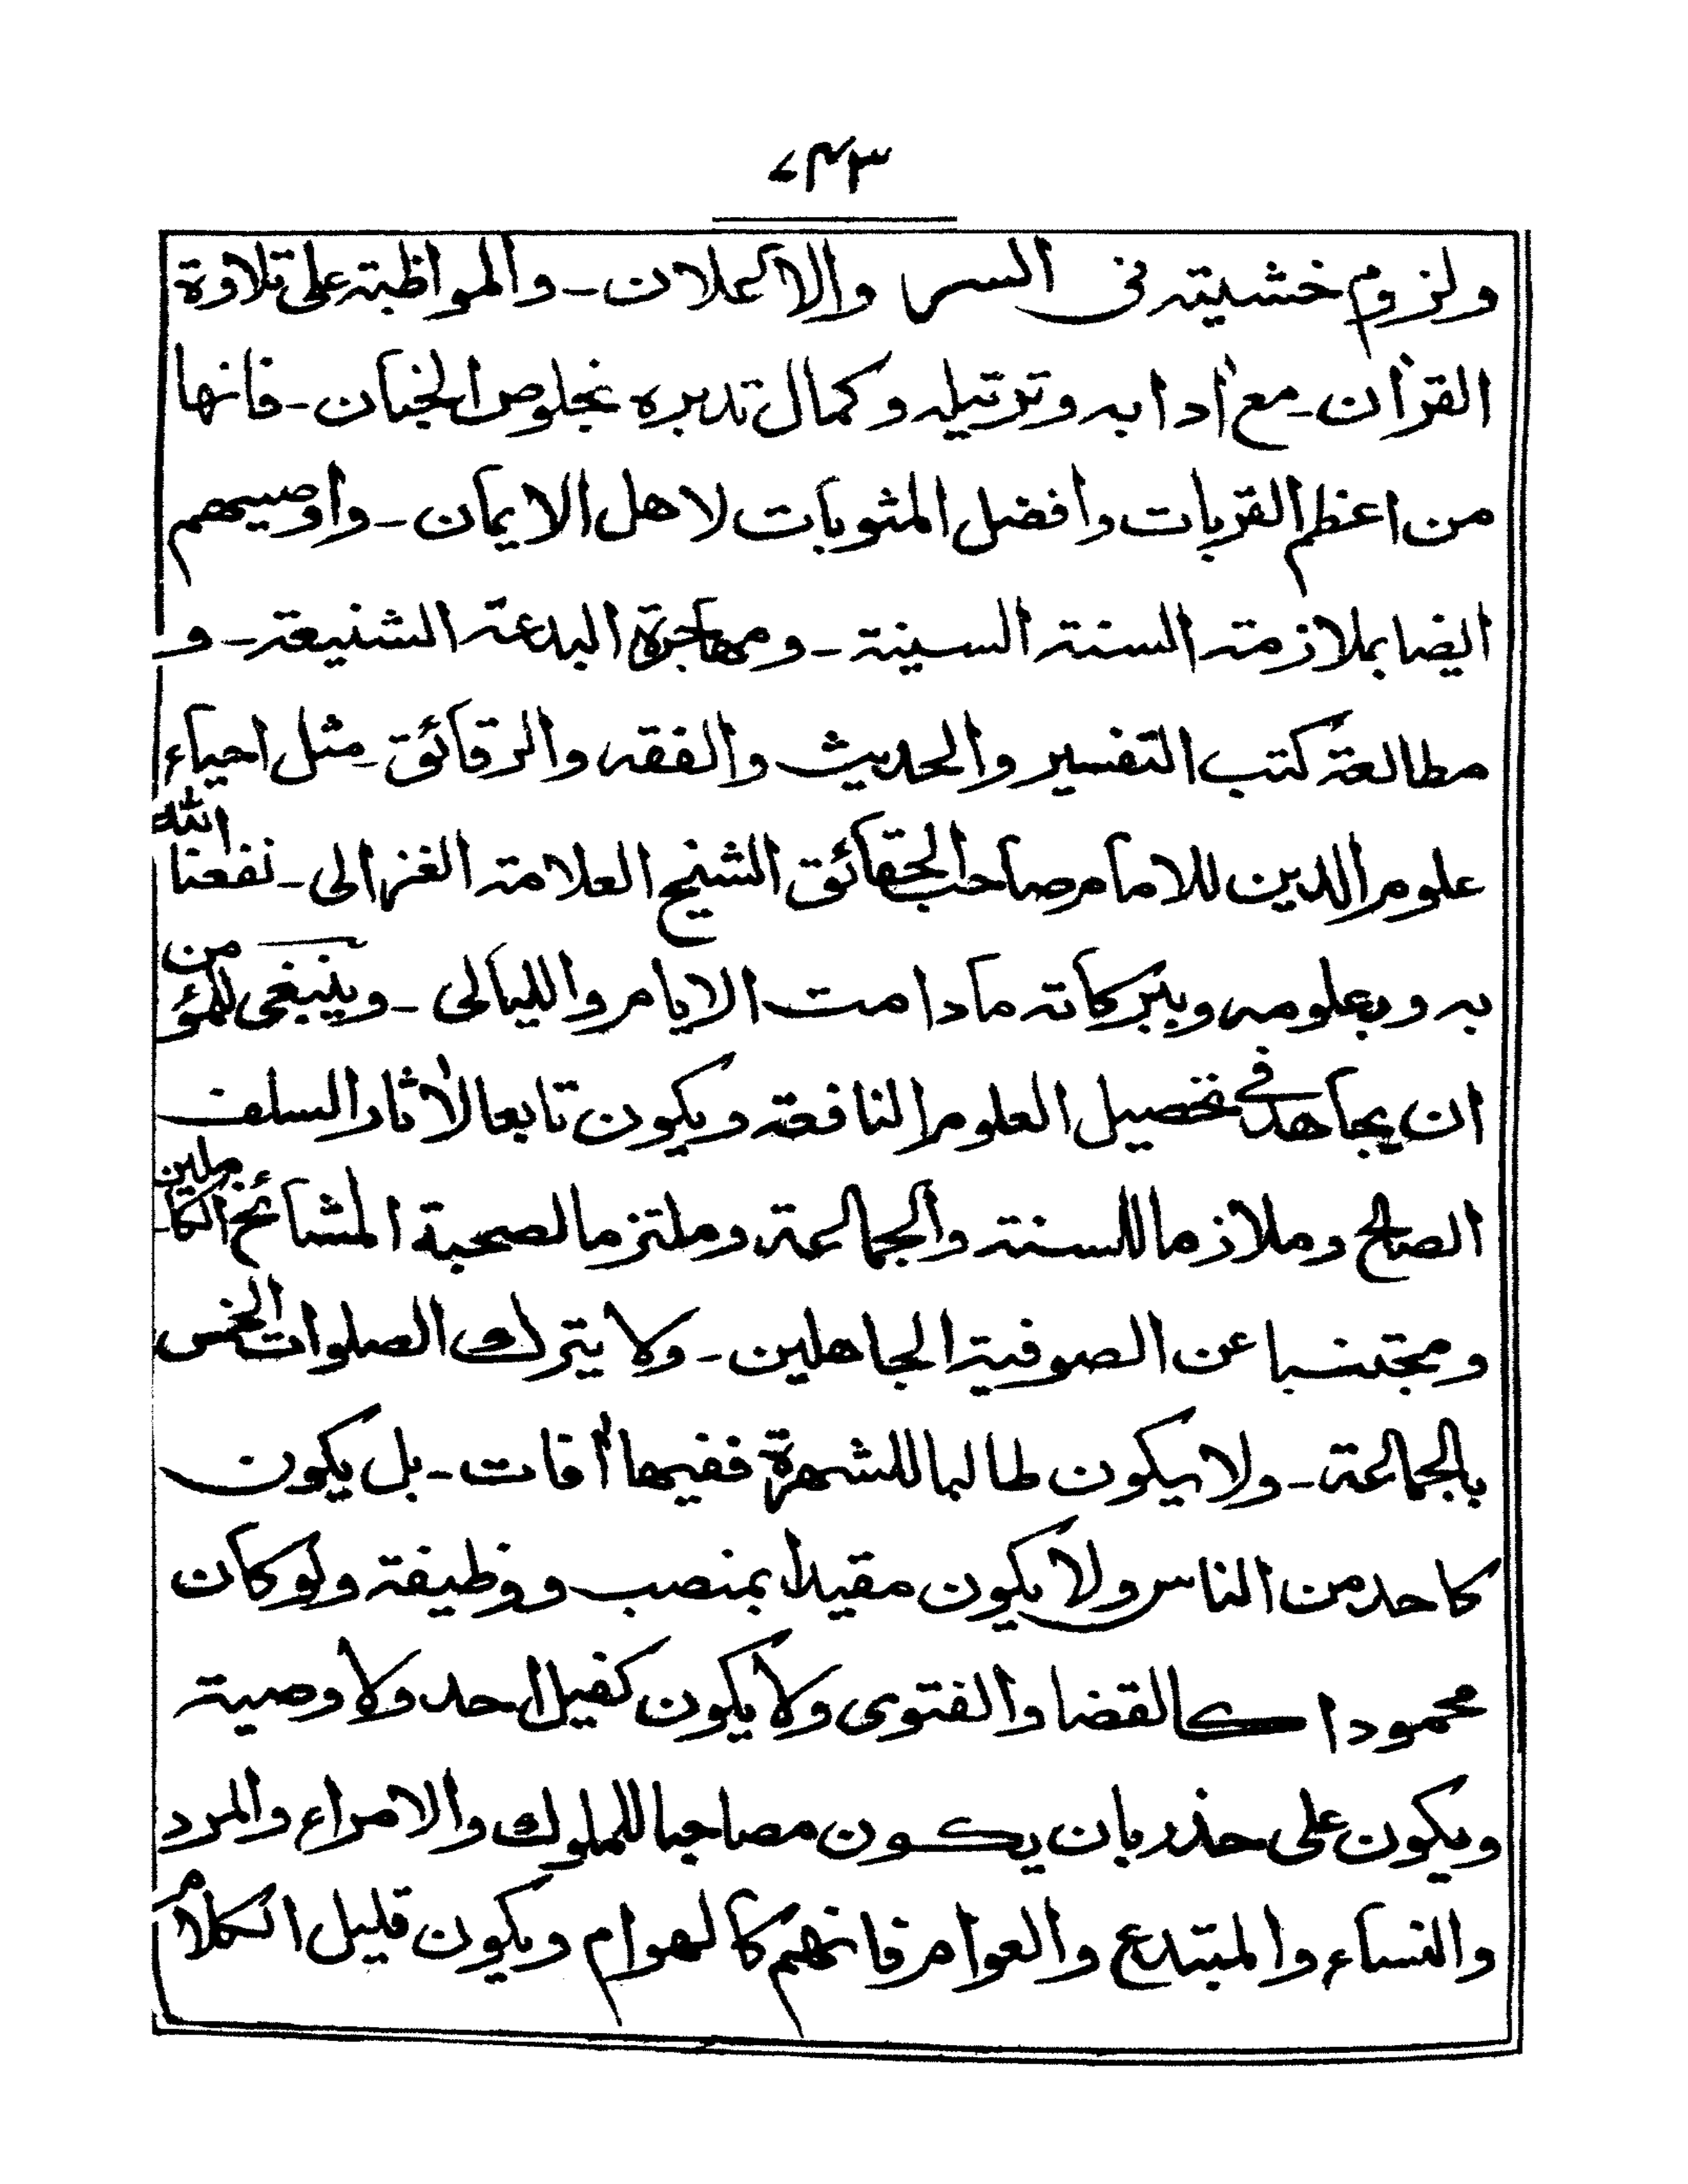 ٧٤٣
ولزوم خشيته فى السر والاعلان - والمواظبة على تلاوة
القرآن - مع آدابه وترتيله وكمال تدبره بخلوص الجنان - فانها
من اعظم القربات وافضل المثوبات لاهل الايمان - واوصيهم
ايضا بملازمة السنة السنية - ومهاجرة البدعة الشنيعة - و
مطالعة كتب التفسير والحديث والفقه والرقائق - مثل احياء
علوم الدين للامام صاحب الحقائق الشيخ العلامة الغزالى - نفعنا الله
به وبعلومه وببركاته ما دامت الايام والليالى - وينبغى للمؤمن
ان يجاهد فى تحصيل العلوم النافعة ويكون تابعا لآثار السلف
الصالح وملازما للسنة والجماعة وملتزما لصحبة المشائخ الكاملين
ومجتنبا عن الصوفية الجاهلين - ولا يترك الصلوات الخمس
بالجماعة - ولا يكون طالبا للشهرة ففيها آفات - بل يكون
كاحد من الناس ولا يكون مقيدا بمنصب ووظيفة ولو كان
محمودا كالقضا والفتوى ولا يكون كفيل احد ولا وصية
ويكون على حذر بان يكون مصاحبا للملوك والامراء والمرد
والنساء والمبتدع والعوام فانهم كالهوام ويكون قليل الكلام